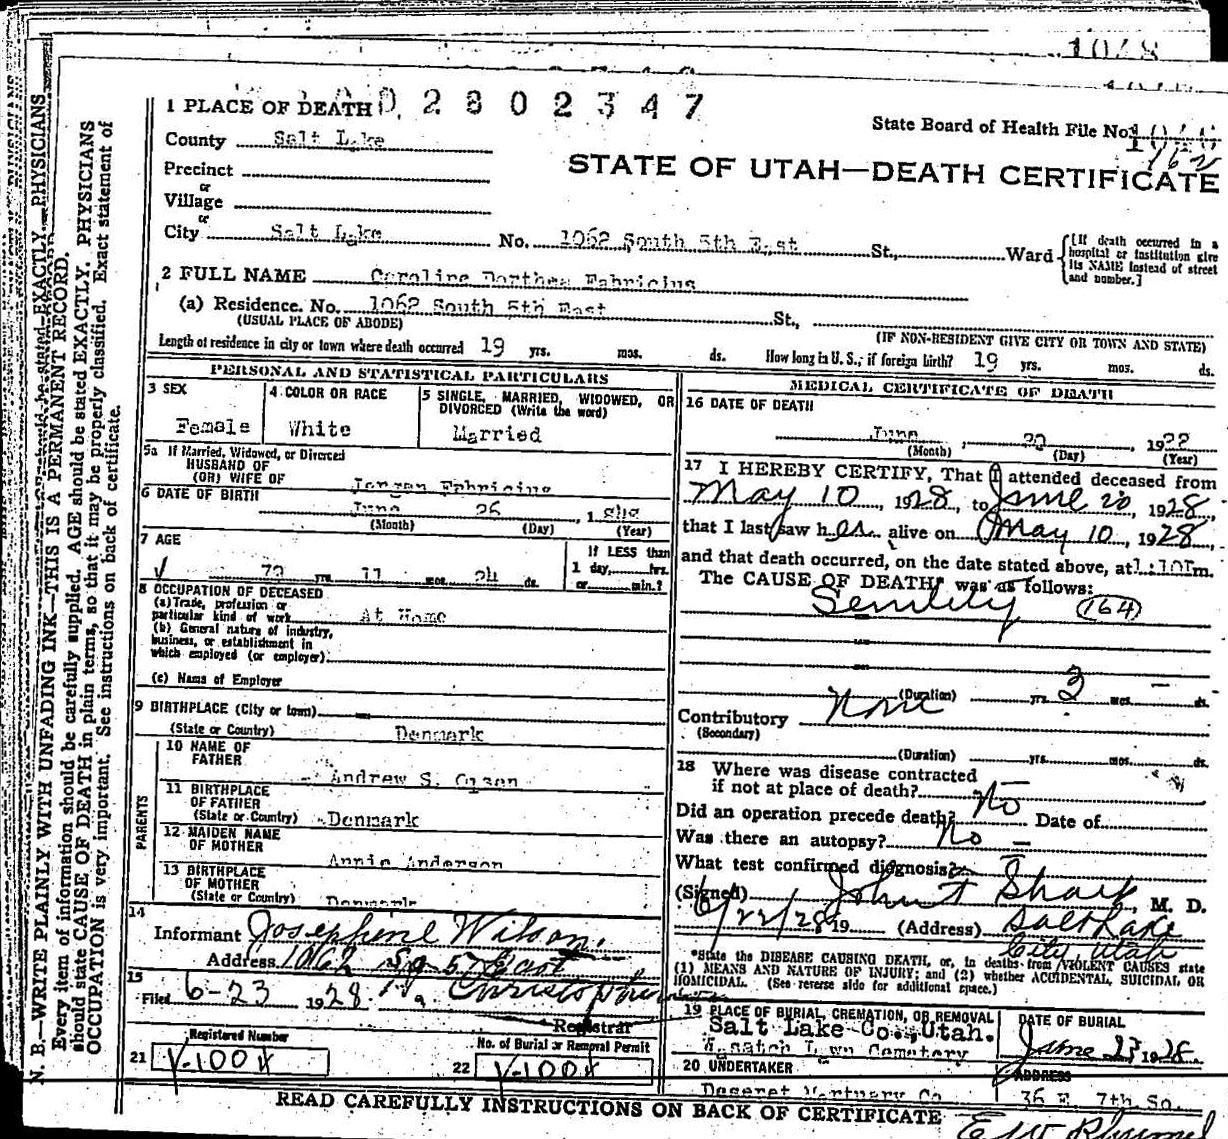 1048
1 PLACE OF DEATH 0 2 8 0 2 3 4 7
State Board of Health File No.
County Salt Lake
162
STATE OF UTAH—DEATH CERTIFICATE
Precinct
or
Village
or
City Salt Lake No. 1062 South 5th East St., Ward
[If death occurred in a hospital or institution give its NAME instead of street and number.]
2 FULL NAME Caroline Dorthea Fabricius
(a) Residence. No. 1062 South 5th East St.,
(USUAL PLACE OF ABODE) (IF NON-RESIDENT GIVE CITY OR TOWN AND STATE)
Length of residence in city or town where death occurred 19 yrs. mos. ds. How long in U. S., if foreign birth? 19 yrs. mos. ds.
PERSONAL AND STATISTICAL PARTICULARS
3 SEX
Female
4 COLOR OR RACE
White
5 SINGLE, MARRIED, WIDOWED, OR DIVORCED (Write the word)
Married
5a If Married, Widowed, or Divorced
HUSBAND OF
(OR) WIFE OF Jorgen Fabricius
6 DATE OF BIRTH
June 26, 1848
(Month) (Day) (Year)
7 AGE
79 yrs. 11 mos. 24 ds.
If LESS than
1 day, hrs.
or min.?
8 OCCUPATION OF DECEASED
(a) Trade, profession or
particular kind of work At Home
(b) General nature of industry,
business, or establishment in
which employed (or employer)
(c) Name of Employer
9 BIRTHPLACE (City or town)
(State or Country) Denmark
PARENTS
10 NAME OF
FATHER Andrew S. Olsen
11 BIRTHPLACE
OF FATHER
(State or Country) Denmark
12 MAIDEN NAME
OF MOTHER Annie Anderson
13 BIRTHPLACE
OF MOTHER
(State or Country) Denmark
14
Informant Josephine Wilson.
Address 1062 So 5 East
15
Filed 6-23 1928.
Registrar
Registered Number
21
No. of Burial or Removal Permit
22
MEDICAL CERTIFICATE OF DEATH
16 DATE OF DEATH
June, 20, 1928
(Month) (Day) (Year)
17 I HEREBY CERTIFY, That I attended deceased from
May 10, 1928, to June 20, 1928,
that I last saw her alive on May 10, 1928,
and that death occurred, on the date stated above, at 1:10Pm.
The CAUSE OF DEATH* was as follows:
Senility (164)
(Duration) yrs. 3 mos. — ds.
Contributory None
(Secondary)
(Duration) yrs. mos. ds.
18 Where was disease contracted
if not at place of death? —
Did an operation precede death? No Date of
Was there an autopsy? No —
What test confirmed diagnosis? —
(Signed) John T Sharp, M. D.
6/22/28 19 (Address) Salt Lake
City Utah
*State the DISEASE CAUSING DEATH, or, in deaths from VIOLENT CAUSES state
(1) MEANS AND NATURE OF INJURY; and (2) whether ACCIDENTAL, SUICIDAL OR
HOMICIDAL. (See reverse side for additional space.)
19 PLACE OF BURIAL, CREMATION, OR REMOVAL
Salt Lake Co., Utah.
Wasatch Lawn Cemetery
DATE OF BURIAL
June 23 1928
20 UNDERTAKER
Deseret Mortuary Co
ADDRESS
36 E. 7th So.
READ CAREFULLY INSTRUCTIONS ON BACK OF CERTIFICATE
N. B.—WRITE PLAINLY WITH UNFADING INK—THIS IS A PERMANENT RECORD.
Every item of information should be carefully supplied. AGE should be stated EXACTLY. PHYSICIANS
should state CAUSE OF DEATH in plain terms, so that it may be properly classified. Exact statement of
OCCUPATION is very important. See instructions on back of certificate.